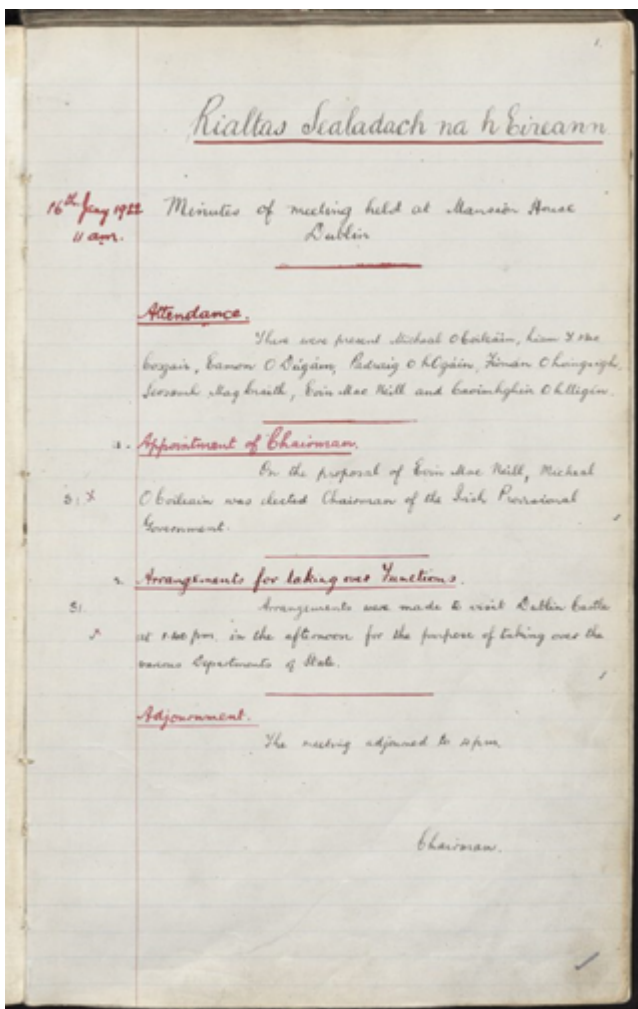 1.
Rialtas Sealadach na h Eireann
16th Jany 1922 Minutes of meeting held at Mansion House
11 am. Dublin
Attendance.
There were present Micheal O Coileáin, Liam T. Mac
Cosgair, Eamon O Dúgáin, Padraig O hOgáin, Fionán O
Seosamh Mag Craith, Eoin Mac Neill and Caoimhghin O hUigín.
1. Appointment of Chairman.
On the proposal of Eoin Mac Neill, Micheal
O Coileain was elected Chairman of the Irish Provisional
Government.
2. Arrangements for taking over Functions.
Arrangements were made to visit Dublin Castle
at pm. in the afternoon for the purpose of taking over the
various Departments of State.
Adjournment.
The meeting adjourned to 4 pm.
Chairman.